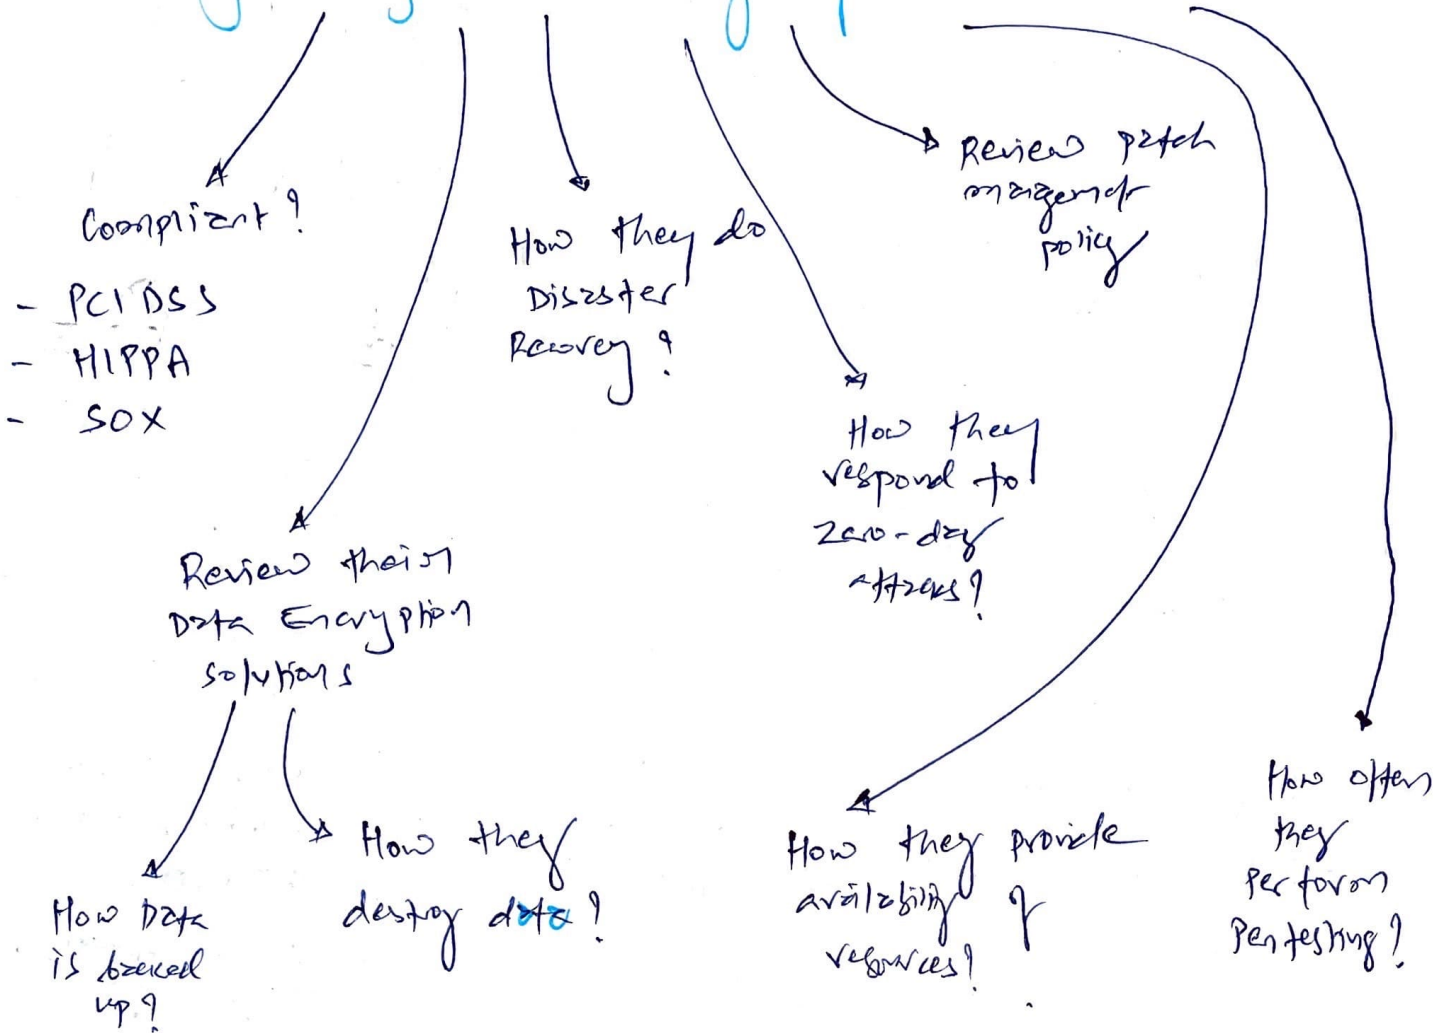 Compliant?
- PCI DSS
- HIPPA
- SOX
How they do
Disaster
Recovery?
Review patch
management
policy
How they
respond to
zero-day
attacks?
Review their
Data Encryption
solutions
How Data
is backed
up?
How they
destroy data?
How they provide
availability of
resources?
How often
they
perform
Pentesting?